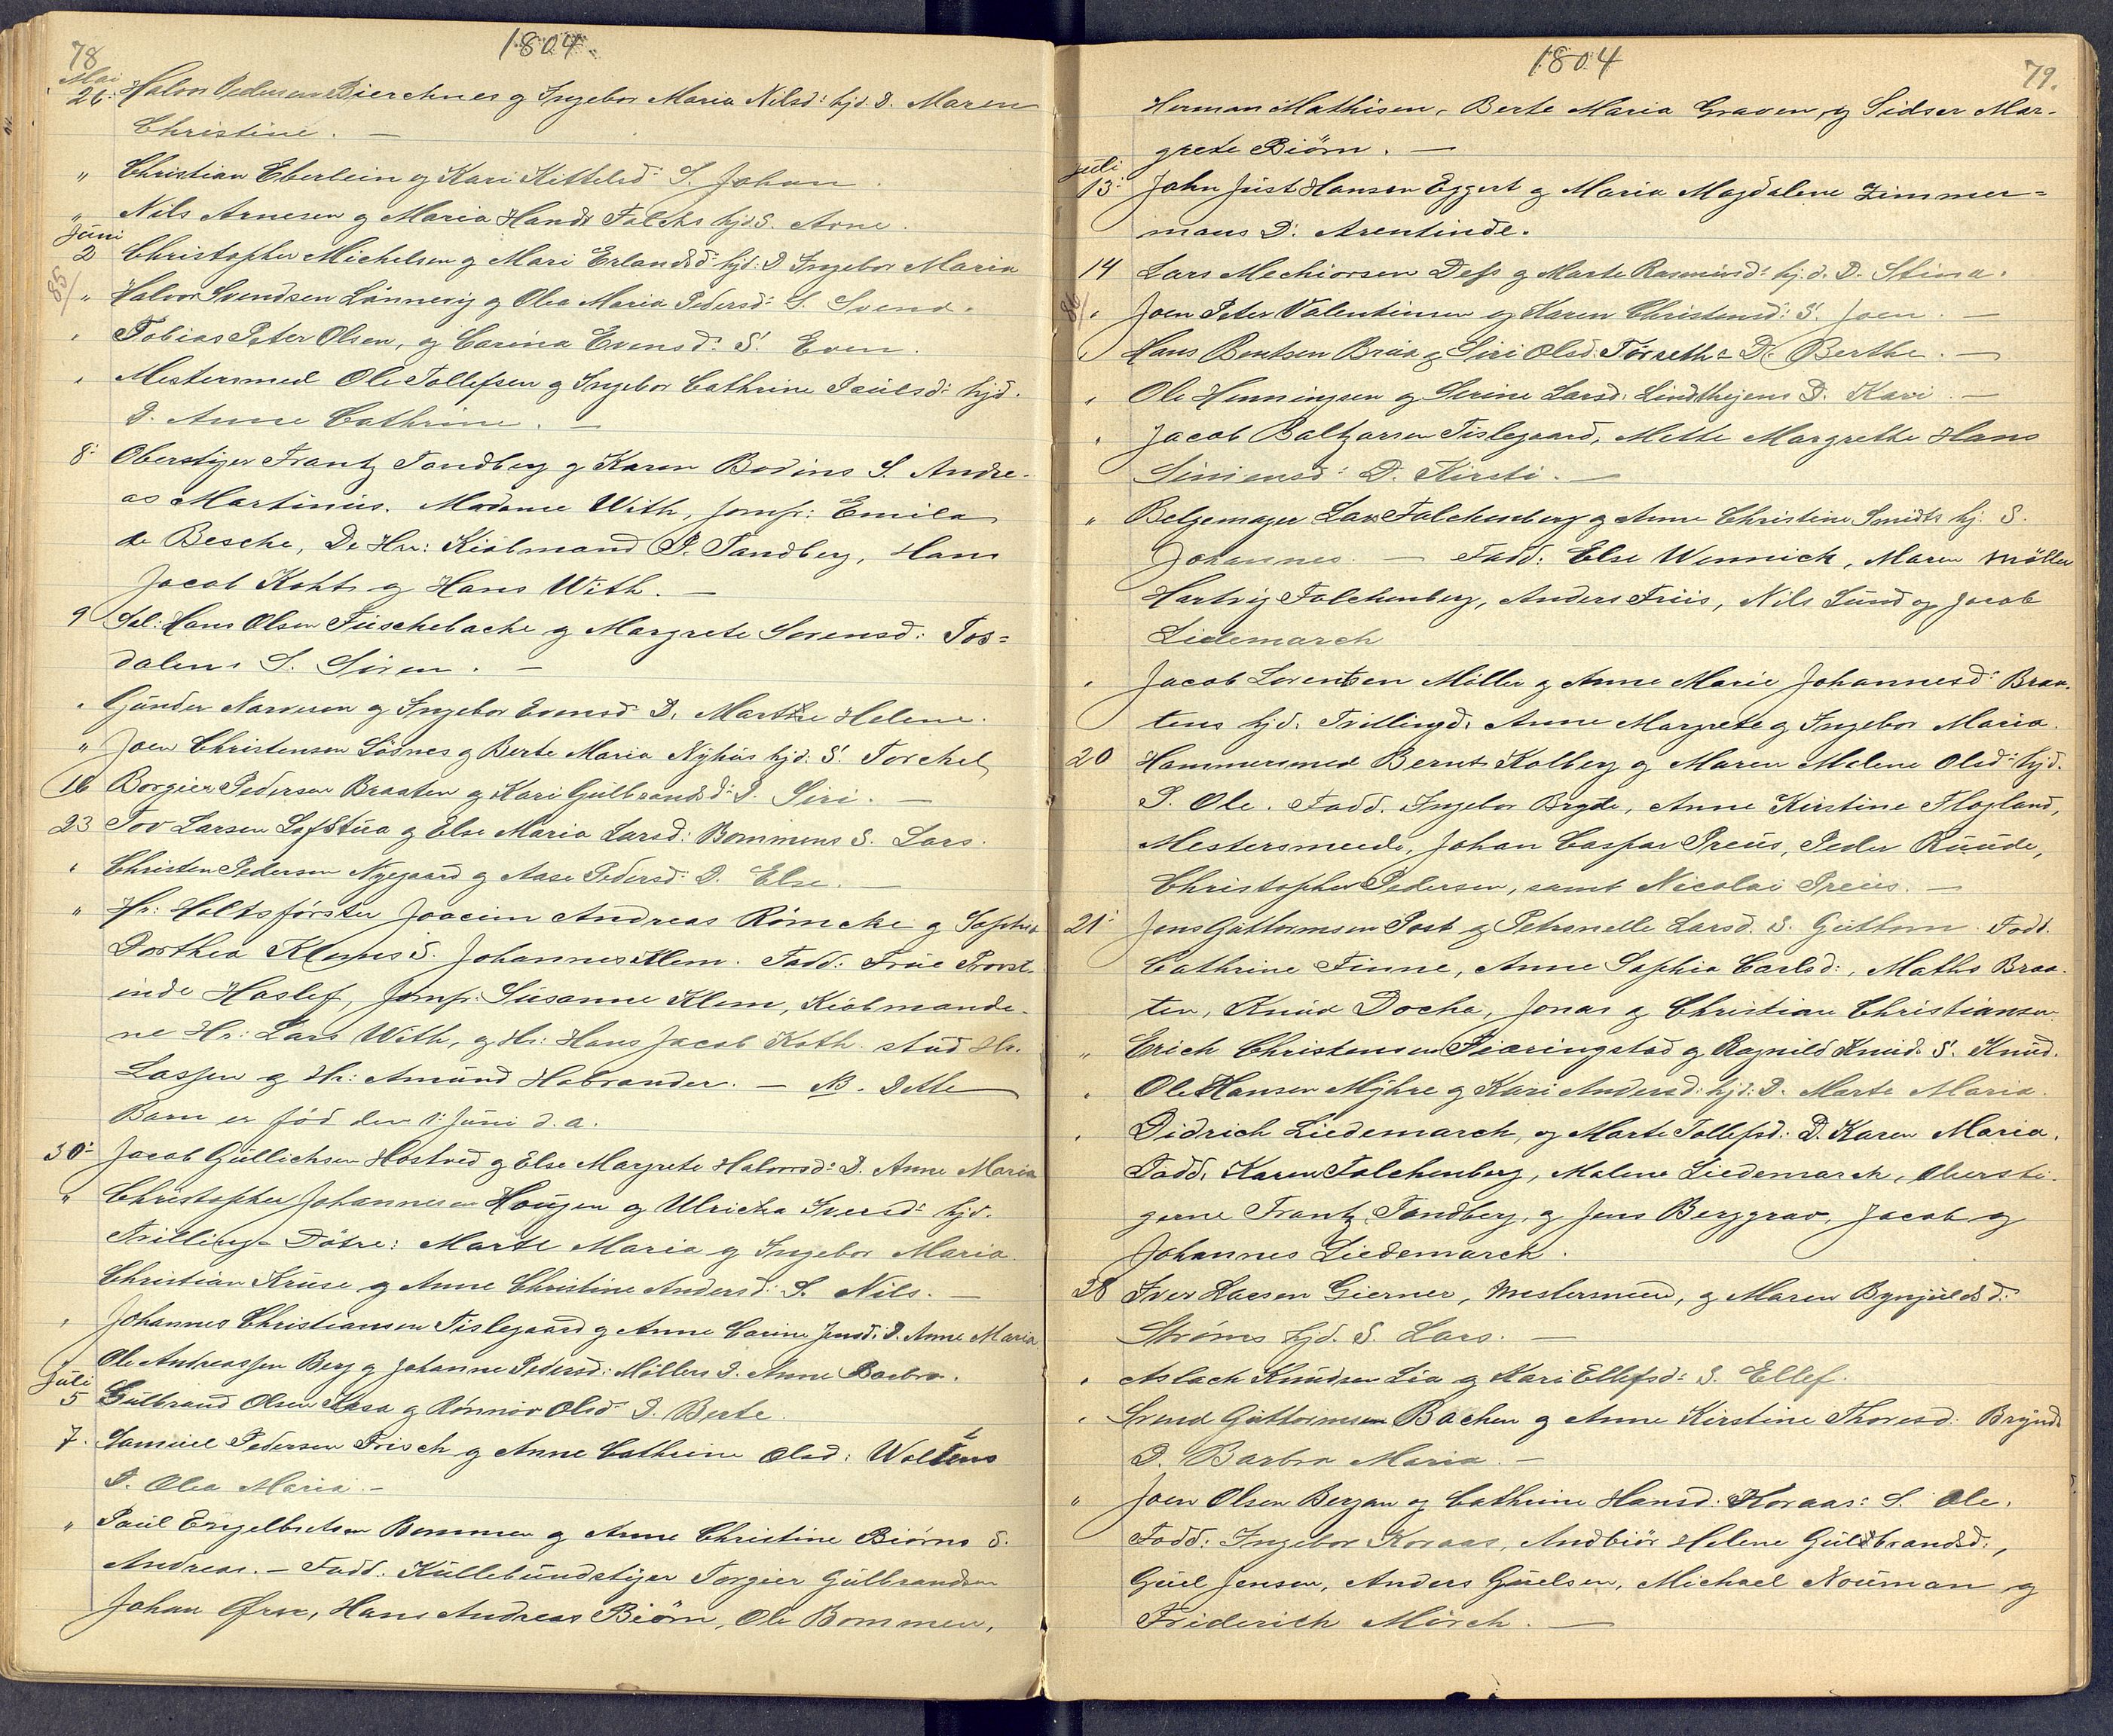 78
1804.
Mai
26: Halvor Pedersen Bierchnes og Ingebor Maria Nilsd: hjd. D. Maren
Christine. —
" Christian Eberlein og Kari Kittelsd: S. Johan.
" Nils Arnesen og Maria Hansd Falchs hjd. S. Arne.
Juni
2 Christopher Michelsen og Mari Erlandsd: hjd: D Ingebor Maria
85/
" Halvor Svendsen Lønnevig og Olea Maria Pedersd: S. Svend.
" Tobias Peter Olsen, og Carina Evensd: S. Even.
" Mestersmed Ole Tollefsen og Ingebor Cathrine Paulsd: hjd.
D. Anne Cathrine. —
8: Oberstiger Frantz Sandberg og Karen Bodins S. Andre-
as Martinus. Madame With, Jomfr: Emila
de Besche, De Hrr: Kiøbmand P. Sandberg, Hans
Jacob Koht og Hans With. —
9 Sal: Hans Olsen Fuschebache og Margrete Sørensd: Tos=
dalens S. Søren. —
" Gunder Narvesen og Ingebor Evensd D. Marthe Helene.
" Joen Christensen Løsnes og Berte Maria Nyhus hjd: S. Torchel
16 Borgier Pedersen Braaten og Kari Gulbrandsd: D. Siri. —
23 Tov Larsen Lofstua og Else Maria Larsd: Bommens S. Lars.
" Christen Pedersen Nygaard og Aase Pedersd: D. Else. —
" Hr: Holtsførster Joacim Andreas Rømcke og Sophia
Dorthea Klems S. Johannes Klem. Fadd: Frue Provst-
inde Haslef, Jomfr: Susanne Klem, Kiøbmænde-
ne Hr: Lars With, og Hr: Hans Jacob Koth stud Hr.
Lassen og Hr: Amund Habrander. — NB. Dette
Barn er fød den 1: Juni d. a.
30: Jacob Gullichsen Hostved og Else Margrete Halvorsd: D. Anne Maria
" Christopher Johannesen Hougen og Ulricha Iversd: hjd.
Tvilling-Døtre: Marte Maria og Ingebor Maria
Christian Kruse og Anne Christine Andersd: S. Nils. —
" Johannes Christiansen Tislegaard og Anne Carine Jensd: D. Anne Maria
" Ole Andreassen Berg og Johanne Pedersd: Møllers D. Anne Barbro.
Juli
5 Gulbrand Olsen Kasa og Rønnov Olsd D. Berte.
7. Samuel Pedersen Frisch og Anne Cathrine Olsd: Woltens
D. Olea Maria. —
" Paul Engelbretsen Bommen og Anne Christine Biørns S.
Andreas. — Fadd: Kullebundstiger Torgier Gulbrandsen
Johan Ørn, Hans Andreas Biørn, Ole Bommen,
1804
79.
Herman Mathisen, Berte Maria Graven, og Sidser Mar-
grete Biørn. —
Juli
13: John Just Hansen Eggert og Maria Magdalene Zimmer=
mans D: Arentinde.
14 Lars Mechiorsen Dess og Marte Rasmusd: hj.d. D. Stina.
86/
" Joen Peter Valentinsen og Karen Christensd: S. Joen. —
" Hans Bentsen Braa og Siri Olsd. Tørreth: D. Berthe. —
" Ole Henningsen og Serine Larsd. Lindthejens D. Kari. —
" Jacob Baltzarsen Tislegaard, Mette Margrethe Hans
Simensd: D. Kirsti. —
" Belgemager Lars Falchenberg og Anne Christine Smidts hj. S.
Johannes. — Fadd: Else Wennich, Maren Møller
Hartvig Falchenberg, Anders Friis, Nils Lund og Jacob
Lidemarch
" Jacob Lorentsen Møller og Anne Marie Johannesd: Braa-
tens hjd. Tvillingd. Anne Margrete og Ingebor Maria.
20 Hammersmed Bernt Kolberg og Maren Malene Olsd: hjd.
S. Ole. Fadd. Ingebor Brgde, Anne Kirstine Flogland,
Mestersmede, Johan Caspar Preus, Peder Ruude,
Christopher Pedersen, samt Nicolai Preus. —
21: Jens Guttormsen Post og Petronelle Larsd. S. Guttorm. Fadd.
Cathrine Finne, Anne Sophia Carlsd:, Maths Braa-
ten, Knud Docha, Jonas og Christian Christiansen.
" Erich Christensen Fiæringstad og Ragnild Knud: S. Knud.
" Ole Hansen Myhre og Kari Andersd: hjd: D. Marte Maria.
" Didrich Liedemarch, og Marte Tollefsd: D. Karen Maria.
Fadd. Karen Falchenberg, Malene Liedemarch, Obersti-
gerne Frantz Sandberg, og Jens Berggrav, Jacob og
Johannes Liedemarck.
28 Iver Larsen Gierner, Mestersmed, og Maren Bynjulsd:
Strøms hjd. S. Lars. —
" Aslach Knudsen Lia og Kari Ellefsd: S. Ellef.
" Svend Guttormsen Bachen og Anne Kirstine Thoresd: Brynds
D. Barbra Maria. —
" Joen Olsen Bergan og Cathrine Hansd: Koraas: S. Ole.
Fadd: Ingebor Koraas, Andbiør Helene Gulbrandsd:,
Guel Jensen, Anders Guelsen, Michael Nouman og
Friderich Mørch. —